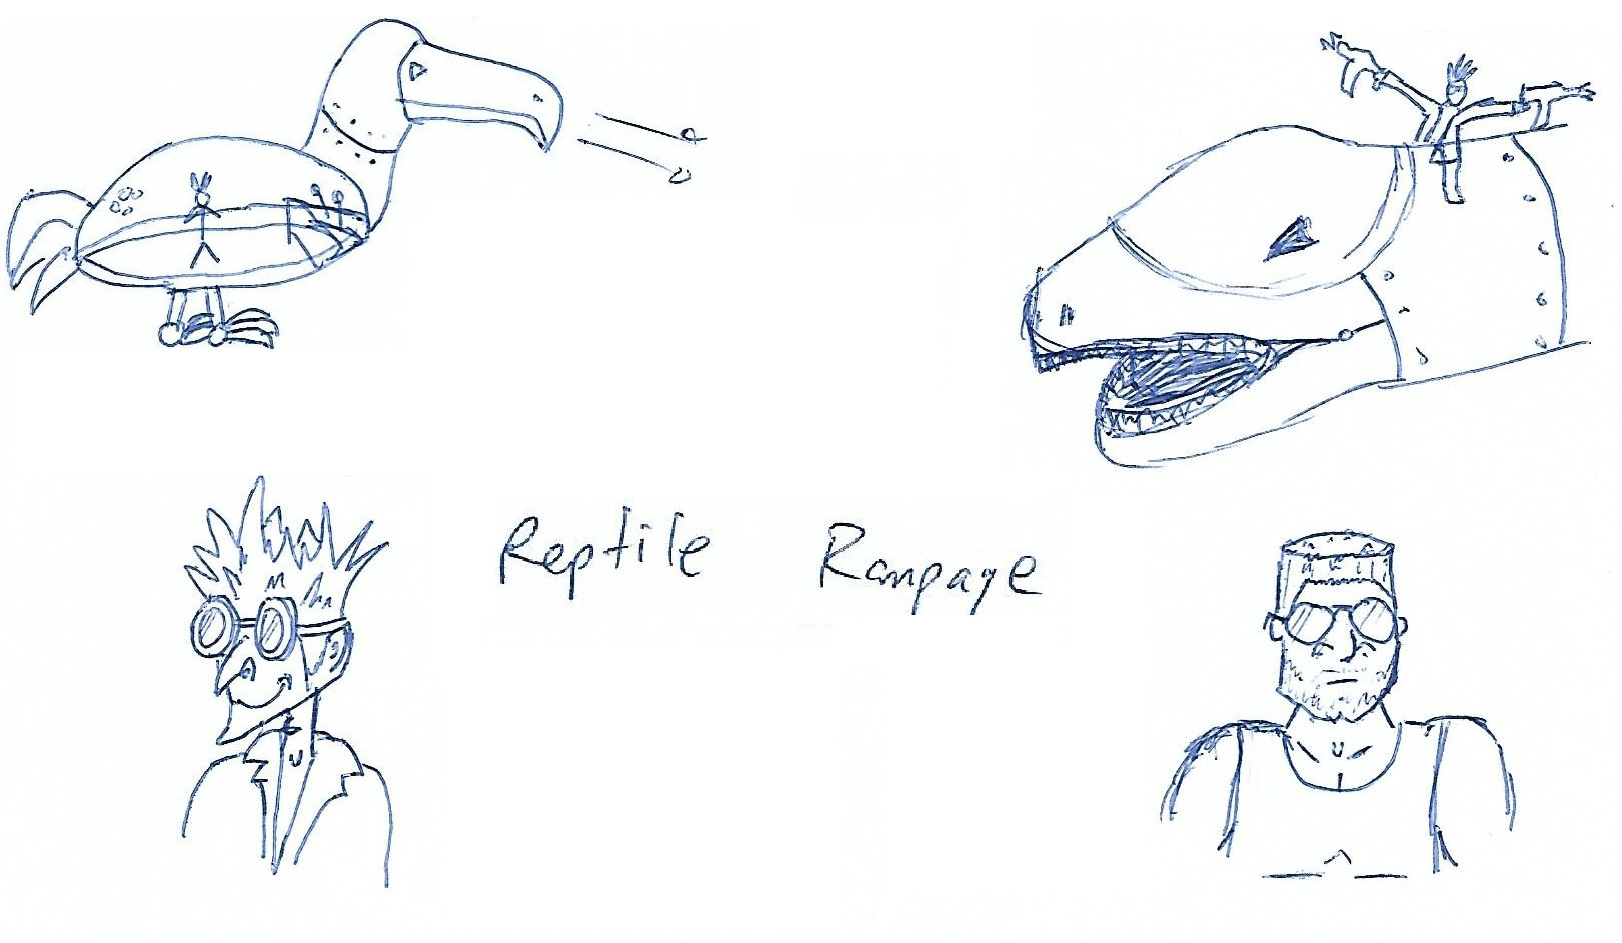 Reptile Rampage